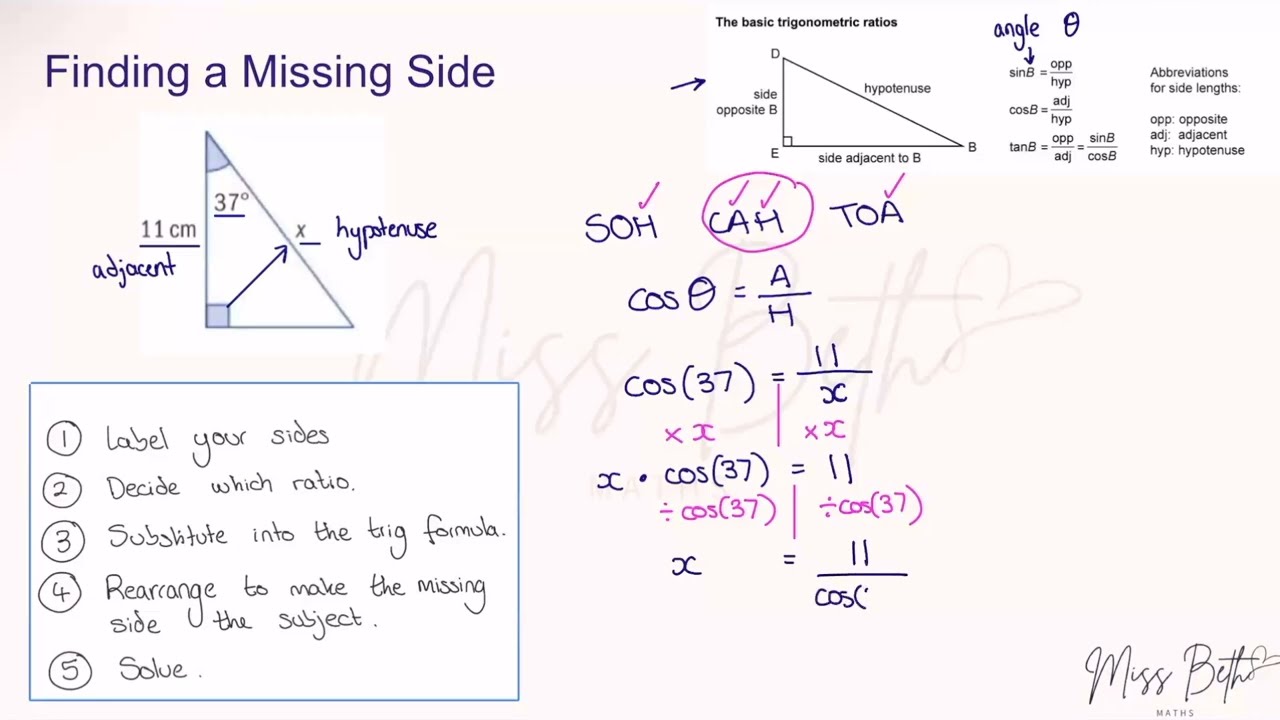 Finding a Missing Side
37°
11 cm
adjacent
x
hypotenuse
① Label your sides
② Decide which ratio.
③ Substitute into the trig formula.
④ Rearrange to make the missing
side the subject.
⑤ Solve.
The basic trigonometric ratios
D
side
opposite B
hypotenuse
E
B
side adjacent to B
angle θ
sinB = opp/hyp
cosB = adj/hyp
tanB = opp/adj = sinB/cosB
Abbreviations
for side lengths:
opp: opposite
adj: adjacent
hyp: hypotenuse
→
SOH ✓ CAH ✓✓ TOA ✓
cos θ = A/H
cos(37) = 11/x
× x | × x
x · cos(37) = 11
÷ cos(37) | ÷ cos(37)
x = 11/cos(
Miss Beth
MATHS
Miss Beth
MATHS